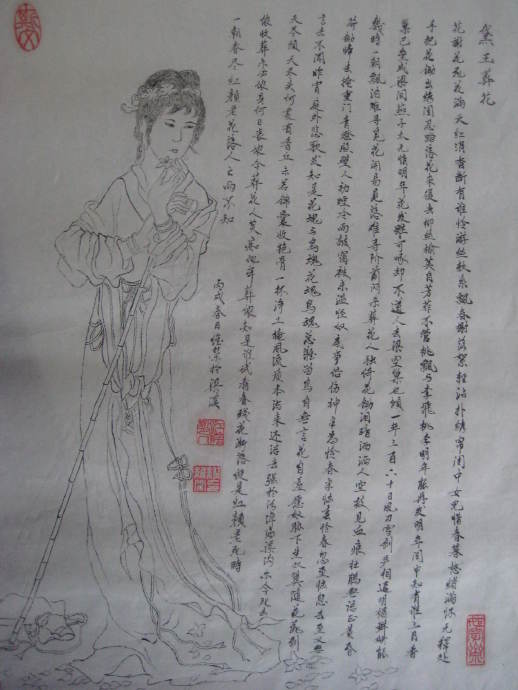 黛玉葬花
花謝花飛花滿天紅消香斷有誰憐游絲軟系飄春榭落絮輕沾扑繡帘閨中女兒惜春暮愁緒滿懷無釋處
手把花鋤出繡閨忍踏落花來復去柳絲榆莢自芳菲不管桃飄與李飛桃李明年能再發明年閨中知有誰三月香
巢已壘成梁間燕子太無情明年花發雖可啄却不道人去梁空巢也傾一年三百六十日風刀霜劍嚴相逼明媚鮮妍能
幾時一朝飄泊難尋覓花開易見落難尋階前悶殺葬花人獨倚花鋤淚暗洒洒上空枝見血痕杜鵑無語正黃昏
荷鋤歸去掩重門青燈照壁人初睡冷雨敲窗被未溫怪奴底事倍傷神半為憐春半惱春憐春忽至惱忽去至又無
言去不聞昨宵庭外悲歌發知是花魂與鳥魂花魂鳥魂總難留鳥自無言花自羞願奴脅下生雙翼隨花飛到
天盡頭天盡頭何處有香丘未若錦囊收艷骨一抔淨土掩風流質本潔來還潔去強於污淖陷渠溝爾今死去
儂收葬未卜儂身何日喪儂今葬花人笑癡他年葬儂知是誰試看春殘花漸落便是紅顏老死時
一朝春盡紅顏老花落人亡兩不知
丙戌春日